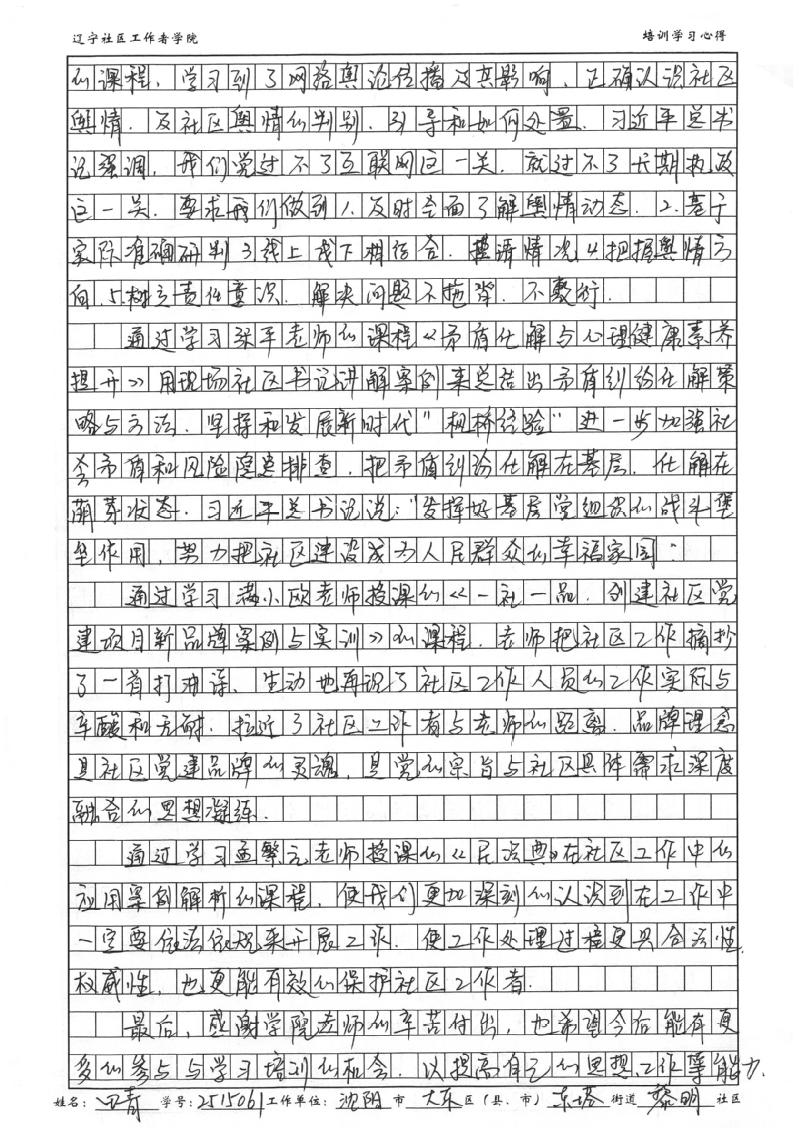 辽宁社区工作者学院 培训学习心得
的课程,学习到了网络舆论传播及其影响,正确认识社区
舆情,及社区舆情的判别,引导和如何处置。习近平总书
记强调,我们党过不了互联网这一关,就过不了长期执政
这一关。要求我们做到1.及时全面了解舆情动态.2.基于
实际准确研判3.线上线下相结合.摸清情况4.把握舆情方
向,5.树立责任意识.解决问题不拖拉.不敷衍.
通过学习张平老师的课程《矛盾化解与心理健康素养
提升》用现场社区书记讲解案例来总结出矛盾纠纷化解策
略与方法.坚持和发展新时代"枫桥经验"进一步加强社
会矛盾和风险隐患排查,把矛盾纠纷化解在基层,化解在
萌芽状态.习近平总书记说:"发挥好基层党组织的战斗堡
垒作用,努力把社区建设成为人民群众的幸福家园:
通过学习满小欧老师授课的《一社一品.创建社区党
建项目新品牌案例与实训》的课程.老师把社区工作摘抄
了一首打油诗、生动地再现了社区工作人员的工作实际与
辛酸和无耐.拉近了社区工作者与老师的距离.品牌理念
是社区党建品牌的灵魂,是党的宗旨与社区具体需求深度
融合的思想凝练.
通过学习孟繁元老师授课的《民法典》在社区工作中的
应用案例解析的课程,使我们更加深刻的认识到在工作中
一定要依法依规来开展工作.使工作处理过程更具合法性
权威性,也更能有效的保护社区工作者.
最后,感谢学院老师的辛苦付出,也希望今后能有更
多的参与与学习培训的机会.以提高自己的思想、工作等能力.
姓名:田青 学号:2515061 工作单位:沈阳市 大东区(县、市) 东塔街道 黎明社区